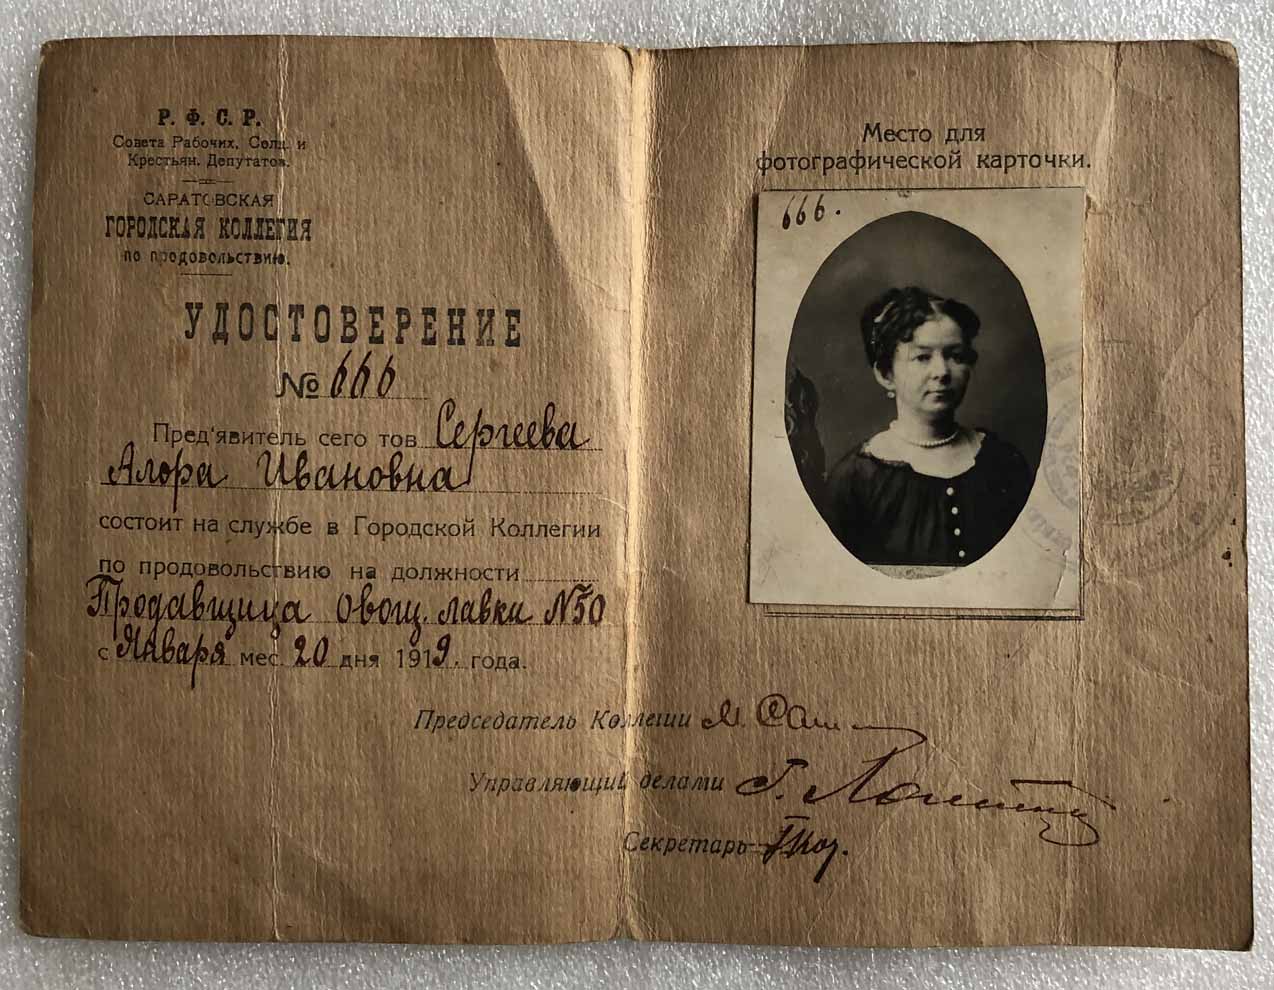 Р. Ф. С. Р.
Совета Рабочих, Солд. и
Крестьян. Депутатов.
САРАТОВСКАЯ
ГОРОДСКАЯ КОЛЛЕГИЯ
по продовольствию.
УДОСТОВЕРЕНИЕ
№ 666
Пред'явитель сего тов Сергеева
Алора Ивановна
состоит на службе в Городской Коллегии
по продовольствию на должности
Продавщица Овощ. лавки №50
с Января мес. 20 дня 1919. года.
Место для
фотографической карточки.
666.
Председатель Коллегии М.
Управляющий делами Г.
Секретарь